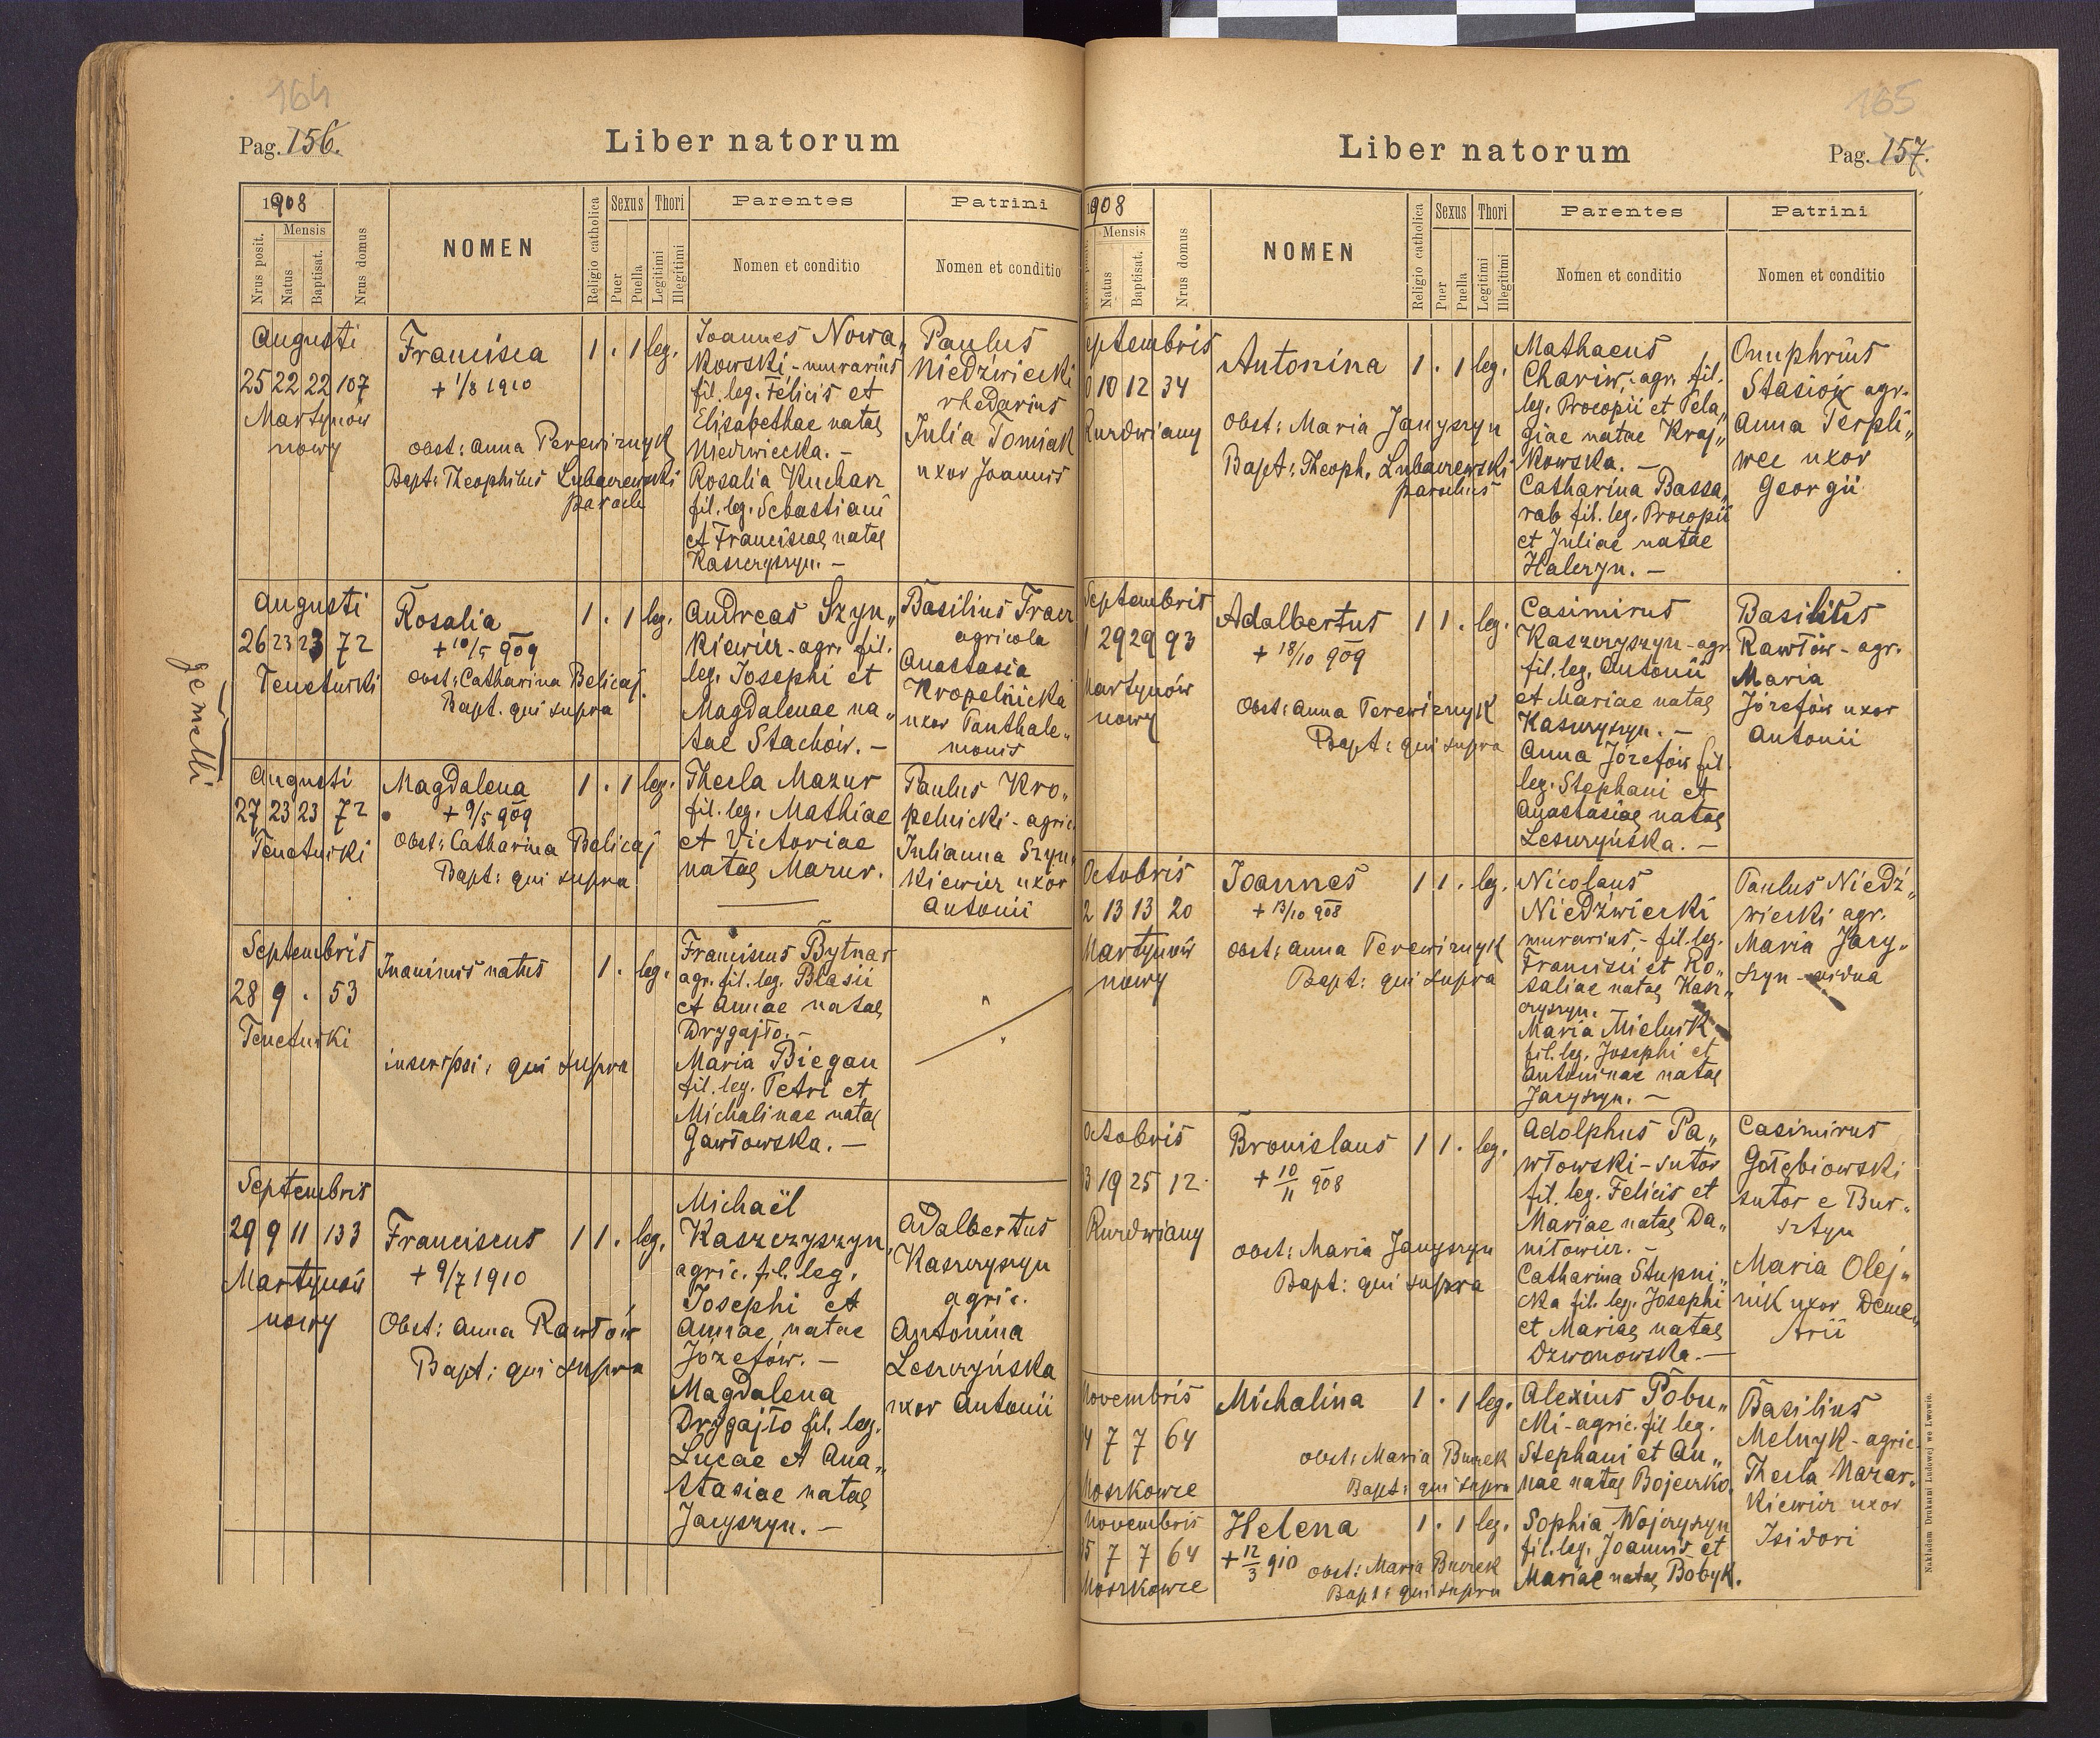 164
Pag. 156.
Liber natorum
1908
Mensis
Nrus posit.
Natus
Baptisat.
Nrus domus
NOMEN
Religio catholica
Sexus
Puer
Puella
Thori
Legitimi
Illegitimi
Parentes
Nomen et conditio
Patrini
Nomen et conditio
Augusti
25 22 22 107
Martynow
nowy
Francisca
+ 1/8 1910
obst: Anna Terewiznyk
Bapt: Theophilus Lubaczewski
paroch
1 . 1 leg.
Joannes Nowa„
kowski - murarius
fil. leg. Felicis et
Elisabethae natae
Niedzwiecka. -
Rosalia Kucharz
fil. leg. Sebastiani
et Franciscae natae
Kaszczyszyn. -
Paulus
Niedźwiecki
rhedarius
Julia Tomiak
uxor Joannis
gemelli
Augusti
26 23 23 72
Tenetniki
Rosalia
+ 10/5 909
obst: Catharina Belicaj.
Bapt. qui supra
1 . 1 leg.
Andreas Szyn„
kiewicz - agr. fil.
leg. Josephi et
Magdalenae na„
tae Stachów. -
Basilius Tracz
agricola
Anastasia
Kropelnicka
uxor Panthale„
monis
Augusti
27 23 23 72
Tenetniki
Magdalena
+ 9/5 909
Obst: Catharina Belicaj
Bapt: qui supra
1 . 1 leg.
Thecla Mazur
fil. leg. Mathiae
et Victoriae
natae Mazur.
Paulus Kro„
pelnicki - agric.
Julianna Szyn„
kiewicz uxor
Antonii
Septembris
28 9 . 53
Tenetniki
Inanimis natus
inscripsi, qui supra
1 . leg.
Franciscus Bytnar
agr. fil. leg. Blasii
et Annae natae
Drygajło. -
Maria Biegan
fil. leg. Petri et
Michalinae natae
Gawłowska. -
Septembris
29 9 11 133
Martynów
nowy
Franciscus
+ 9/7 1910
Obst: Anna Rawłów
Bapt: qui supra
1 1 . leg.
Michaël
Kaszczyszyn,
agric. fil. leg.
Josephi et
Annae natae
Józefów. -
Magdalena
Drygajło fil. leg.
Lucae et Ana„
stasiae natae
Jaryszyn. -
Adalbertus
Kaszczyszyn
agric.
Antonina
Leszczyńska
uxor Antonii
165
Liber natorum
Pag. 157.
908
Mensis
Natus
Baptisat.
Nrus domus
NOMEN
Religio catholica
Sexus
Puer
Puella
Thori
Legitimi
Illegitimi
Parentes
Nomen et conditio
Patrini
Nomen et conditio
eptembris
0 10 12 34
Kurdwiany
Antonina
obst: Maria Janyszyn
Bapt: Theoph. Lubaczewski
parochus
1 . 1 leg.
Mathaeus
Chariw, agr. fil.
leg. Procopii et Pela„
giae natae Kraj„
kowska. -
Catharina Bassa„
rab fil. leg. Procopii
et Juliae natae
Haleczyn. -
Onuphrius
Stasiów agr.
Anna Terpli„
wec uxor
Georgii
Septembris
1 29 29 93
Martynów
nowy
Adalbertus
+ 18/10 909
Obst: Anna Terewiznyk
Bapt: qui supra
1 1 . leg.
Casimirus
Kaszczyszyn - agr.
fil. leg. Antonii
et Mariae natae
Kaszczyszyn. -
Anna Józefów fil.
leg. Stephani et
Anastasiae natae
Leszczyńska. -
Basilius
Rawłów - agr.
Maria
Józefów uxor
Antonii
Octobris
2 13 13 20
Martynów
nowy
Joannes
+ 13/10 908
Obst: Anna Terewiznyk
Bapt: qui supra
1 1 . leg.
Nicolaus
Niedźwiecki
murarius, - fil. leg.
Francisci et Ro„
saliae natae Kasz„
czyszyn.
Maria Mielnik
fil. leg. Josephi et
Antoninae natae
Jaryszyn. -
Paulus Niedź„
wiecki agr.
Maria Jary„
szyn - vidua
Octobris
3 19 25 12
Kurdwiany
Bronislaus
+ 10/11 908
obst: Maria Janyszyn
Bapt: qui supra
1 1 . leg.
Adolphus Pa„
włowski - sutor
fil. leg. Felicis et
Mariae natae Da„
niłowicz. -
Catharina Stupni„
cka fil. leg. Josephi
et Mariae natae
Dzwonowska. -
Casimirus
Gołębiowski
sutor e Bur„
sztyn
Maria Olej„
nik uxor Deme„
trii
Novembris
4 7 7 64
Moszkowce
Michalina
obst: Maria Burek
Bapt: qui supra
1 . 1 leg.
Alexius Pobu„
cki - agric. fil leg.
Stephani et An„
nae natae Bojeczko.
Basilius
Melnyk - agric
Thecla Mazar„
kiewicz uxor
Isidori
Novembris
5 7 7 64
Moszkowce
Helena
+ 12/3 910 obst: Maria Burek
Bapt: qui supra
1 . 1 leg.
Sophia Wojczyszyn
fil. leg. Joannis et
Mariae natae Bobyk.
Nakładem Drukarni Ludowej we Lwowie.